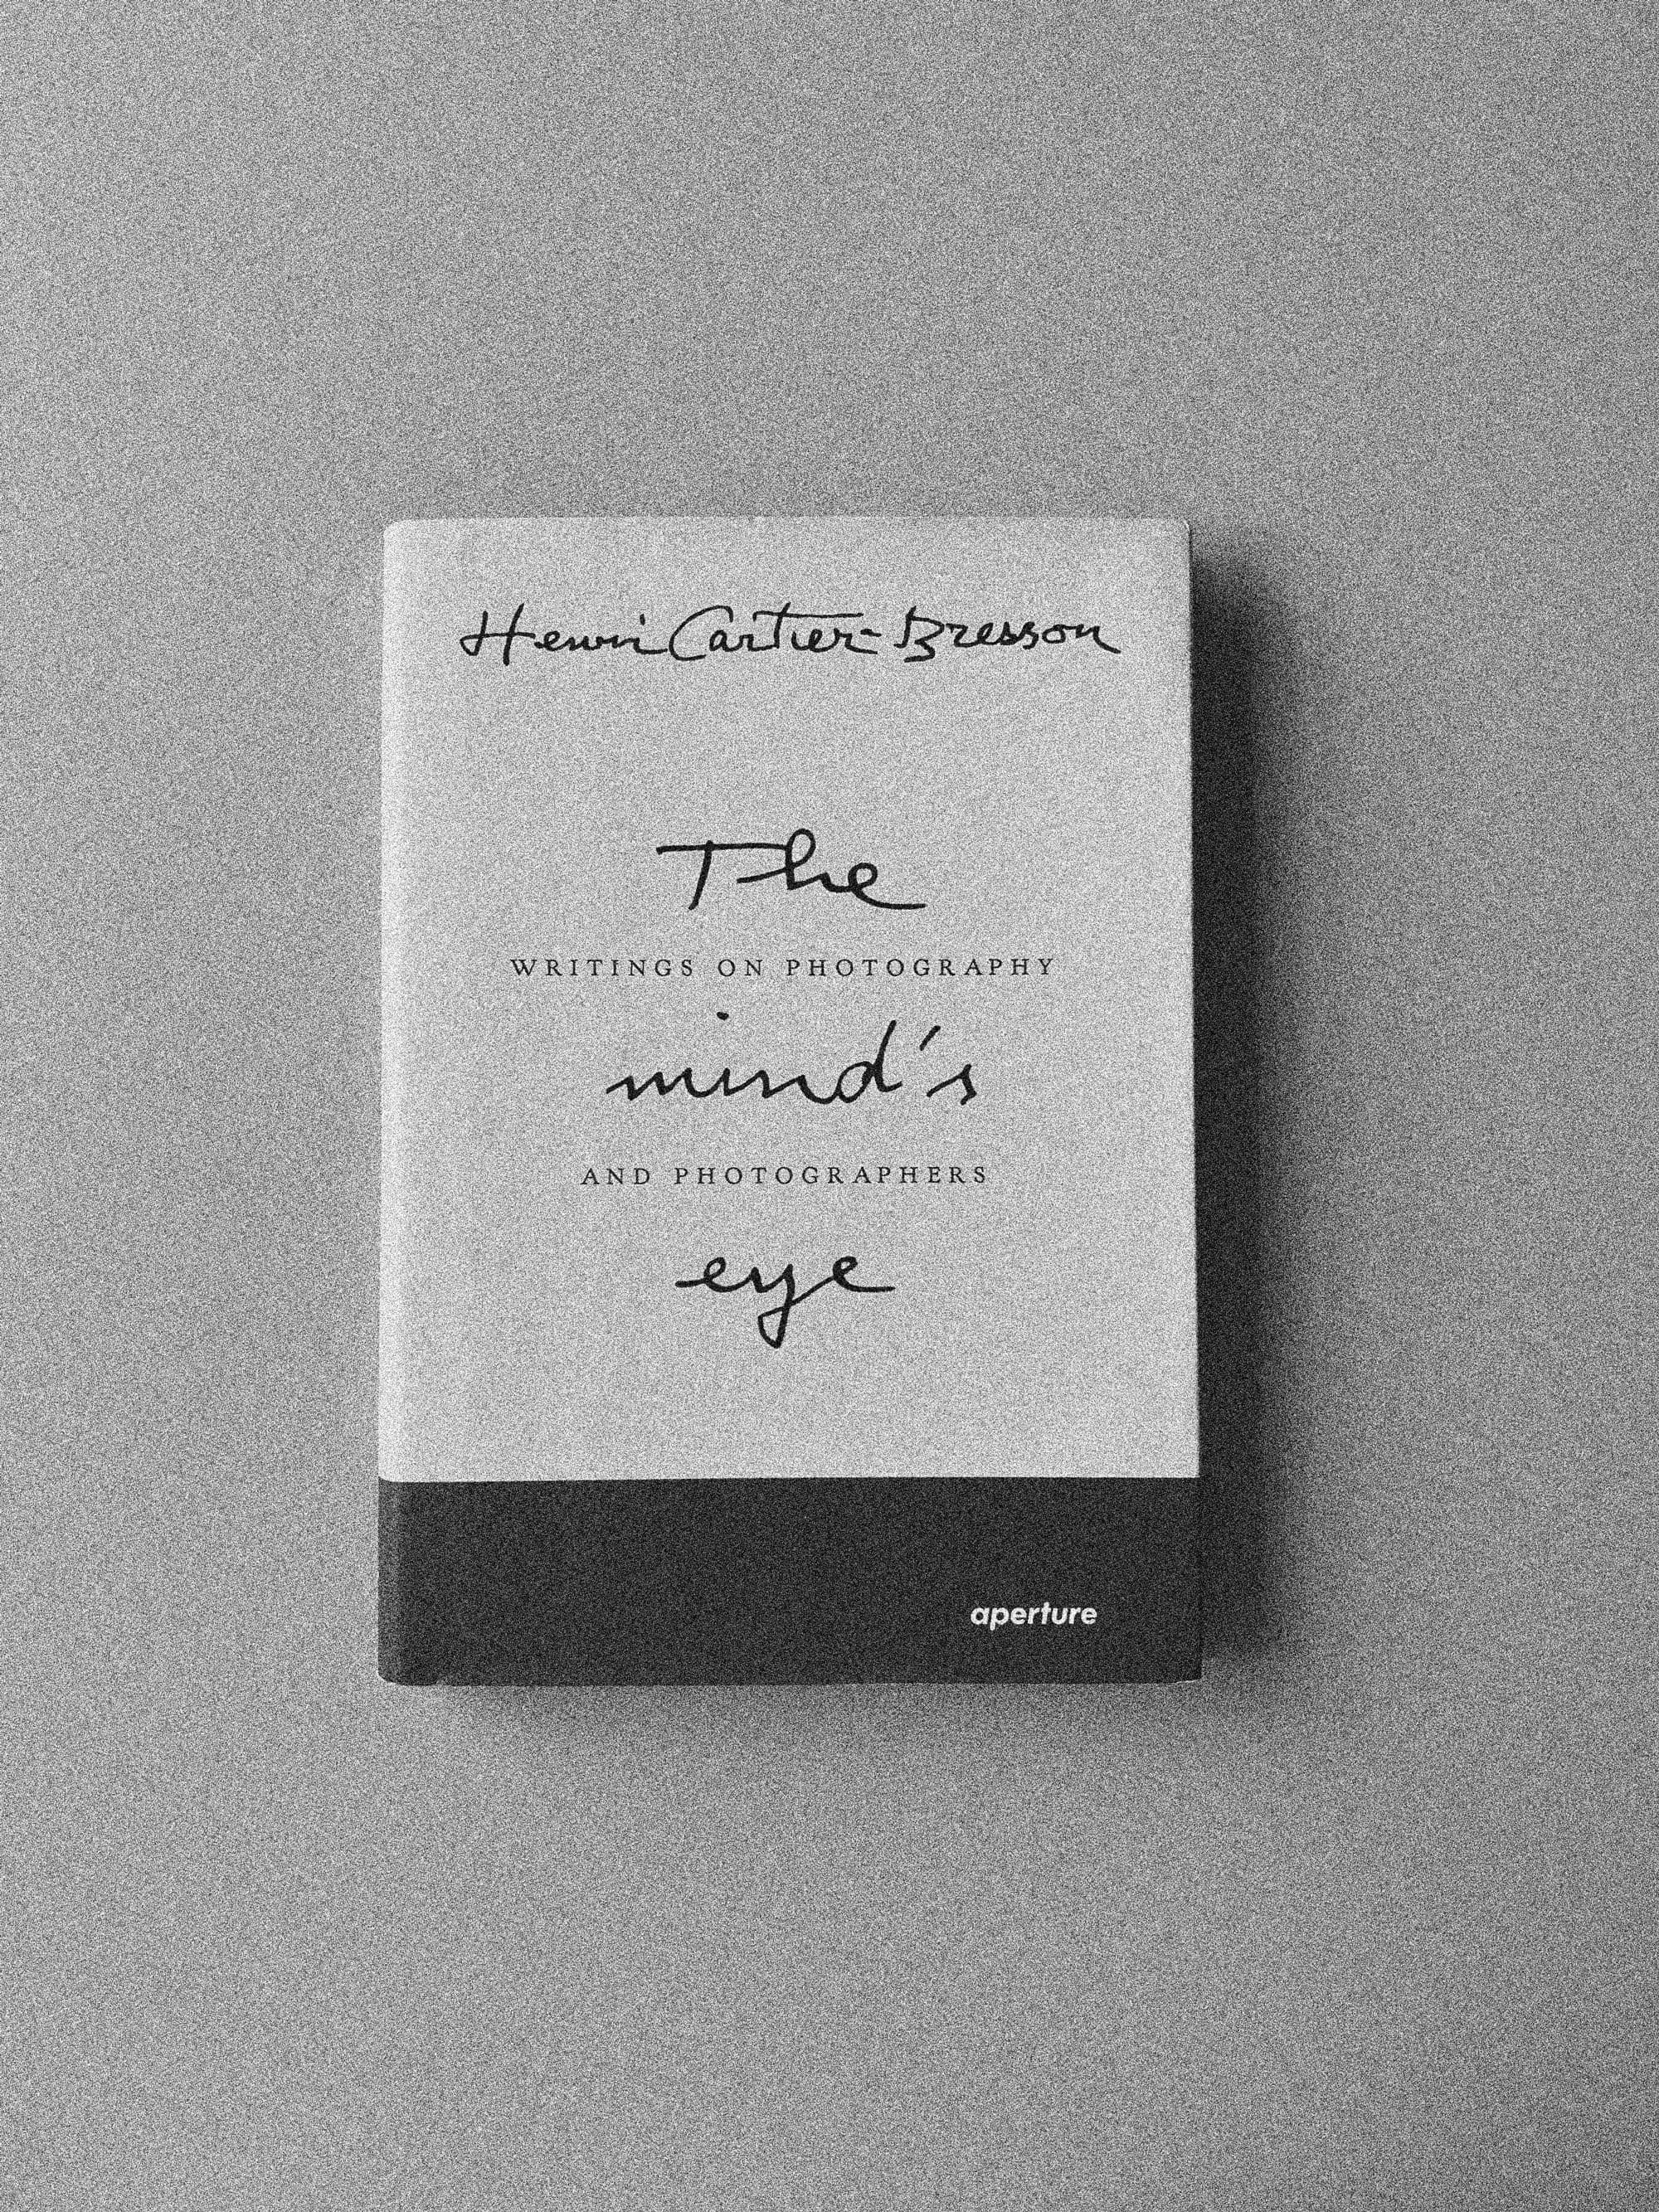 Henri Cartier-Bresson
The
WRITINGS ON PHOTOGRAPHY
mind's
AND PHOTOGRAPHERS
eye
aperture